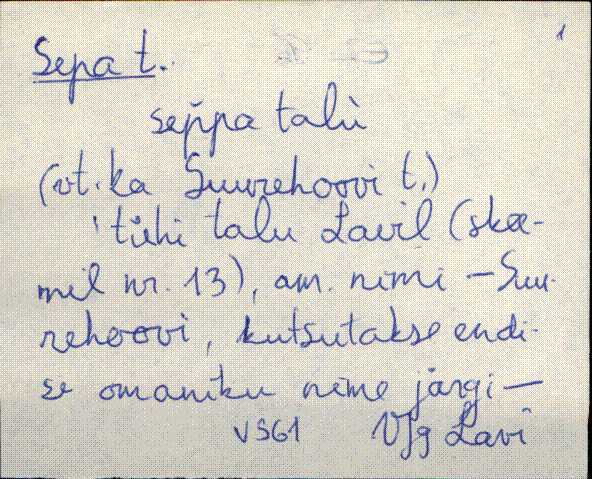 1
Sepa t.
sep̆pa talù
(vt. ka Suurehoovi t.)
'tühi talu Lavil (skee-
mil nr. 13), am. nimi – Suu-
rehoovi, kutsutakse endi-
se omaniku nime järgi –
VSG1 Vjg Lavi